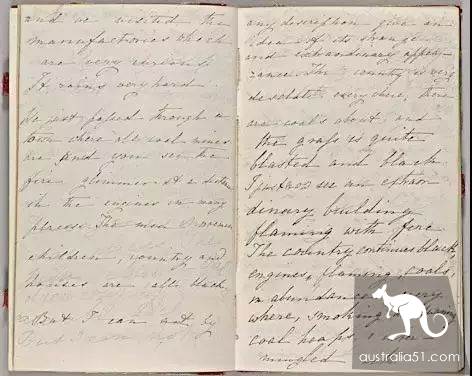 and we visited the
manufactories which
are very curious.
It rains very hard.
We just passed through a
town where all coal mines
are and you see the
fire glimmer at a distance
in the engines in many
places. The men women
children, country and
houses are all black.
But I can not by
any description give an
idea of its strange
and extraordinary appea-
rance. The country is very
desolate every where; there
are coals about, and
the grass is quite
blasted and black.
I just now see an extraor
dinary building
flaming with fire.
The country continues black,
engines, flaming coals,
in abundance, every
where, smoking and
coal heaps,
mingled
australia51.com